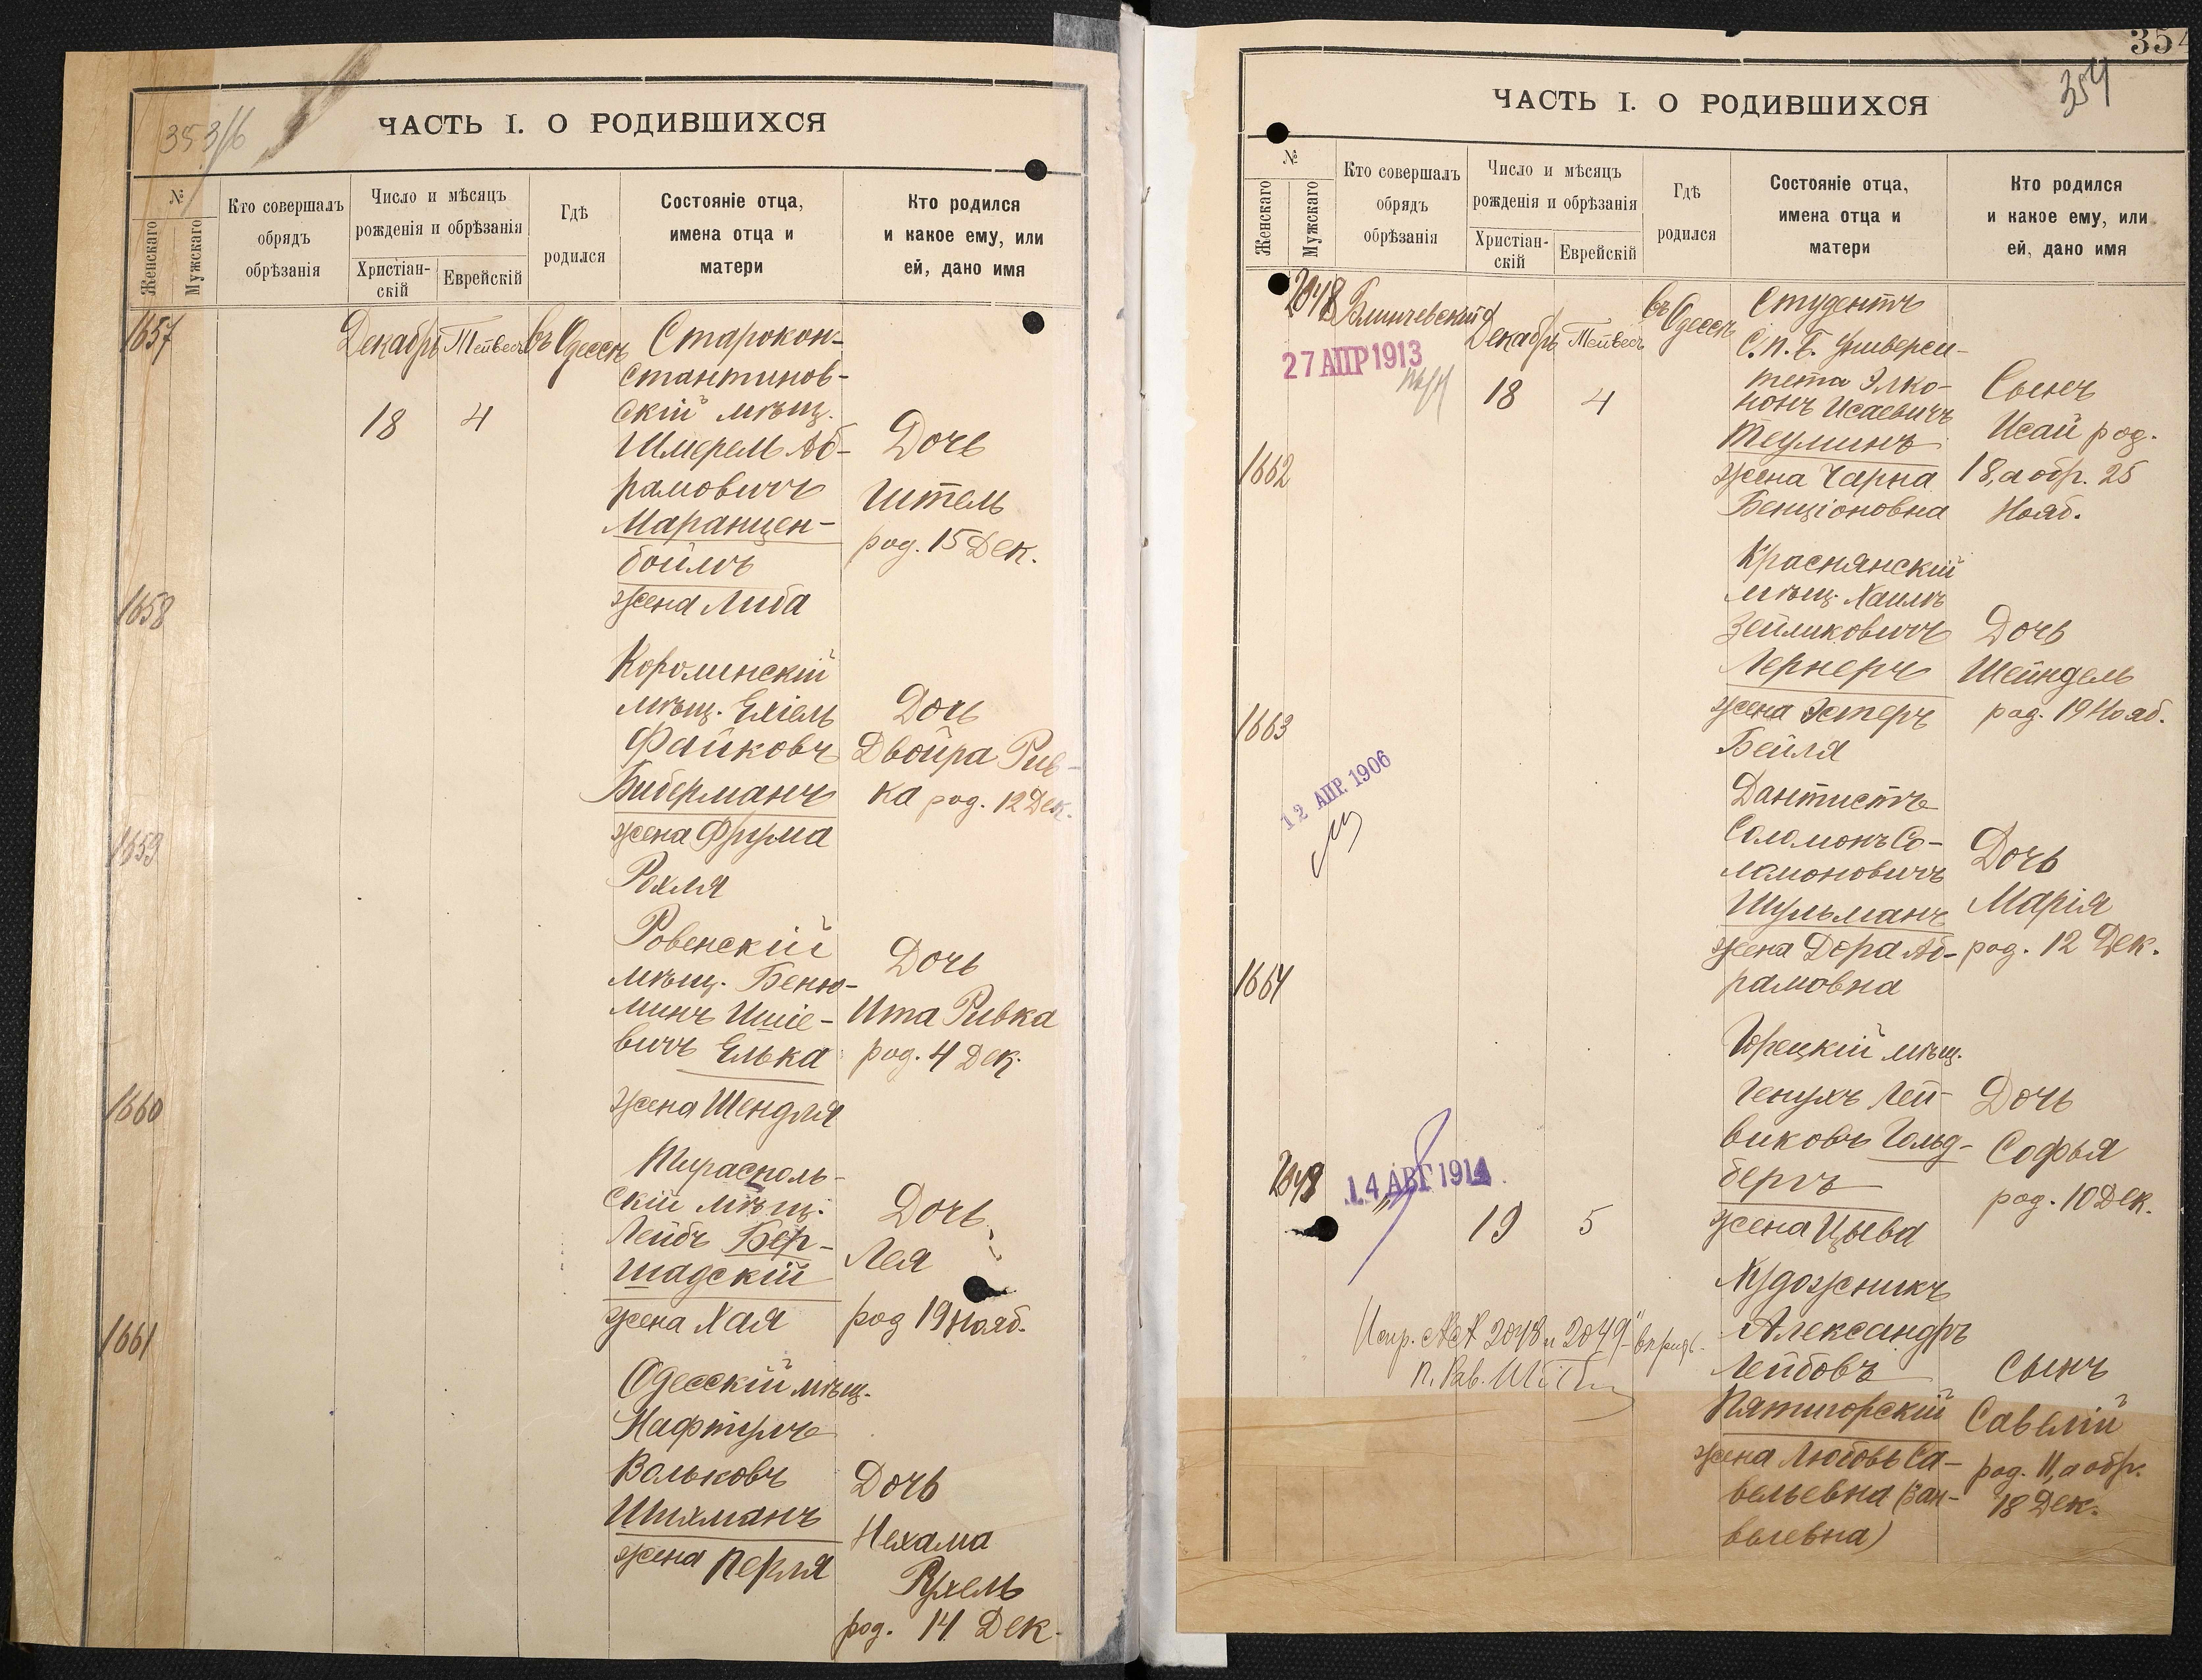 353/6
ЧАСТЬ I. О РОДИВШИХСЯ
№
Женскаго
Мужскаго
Кто совершалъ
обрядъ
обрѣзанія
Число и мѣсяцъ
рожденія и обрѣзанія
Христіан-
скій
Еврейскій
Гдѣ
родился
Состояніе отца,
имена отца и
матери
Кто родился
и какое ему, или
ей, дано имя
1657
Декабрь
Тейвесъ
въ Одессѣ
18
4
Старокон-
стантинов-
скій мѣщ.
Шмерель Аб-
рамовичъ
Маранцен-
боймъ
жена Либа
Дочь
Итель
род. 15 Дек.
1658
мѣщ. Ехіель
Файковъ
Биберманъ
жена Фрума
Рохля
Дочь
Двойра Рив-
ка род. 12 Дек.
1659
Ровенскій
мѣщ. Беню-
минъ Ишіе-
вичъ Елька
жена Шендля
Дочь
Ита Ривка
род. 4 Дек.
1660
Тирасполь-
скій мѣщ.
Лейбъ Бер-
шадскій
жена Хая
Дочь
Лея
род 19 Нояб.
1661
Одесскій мѣщ.
Нафтулъ
Вольковъ
Шихманъ
жена Перля
Дочь
Нехама
Рухель
род. 14 Дек.
354
354
ЧАСТЬ I. О РОДИВШИХСЯ
№
Женскаго
Мужскаго
Кто совершалъ
обрядъ
обрѣзанія
Число и мѣсяцъ
рожденія и обрѣзанія
Христіан-
скій
Еврейскій
Гдѣ
родился
Состояніе отца,
имена отца и
матери
Кто родился
и какое ему, или
ей, дано имя
2048
Декабрь
Тейвесъ
въ Одессѣ
27 АПР 1913
18
4
Студентъ
С.П.Б. Универси-
тета Элко-
нонъ Исаевичъ
Теуминъ
жена Чарна
Бенціоновна
Сынъ
Исай род.
18, а обр. 25
Нояб.
1662
Краснянскій
мѣщ. Хаимъ
Зейликовичъ
Лернеръ
жена Эстеръ
Бейля
Дочь
Шейндель
род. 19 Нояб.
1663
12 АПР. 1906
Дантистъ
Соломонъ Со-
ломоновичъ
Шульманъ
жена Дора Аб-
рамовна
Дочь
Марія
род. 12 Дек.
1664
Горецкій мѣщ.
Генухъ Лей-
виковъ Гольд-
бергъ
жена Цыва
Дочь
Софья
род. 10 Дек.
2048
14 АВГ 1914
"
19
5
Художникъ
Александръ
Лейбовъ
Пятигорскій
жена Любовь Са-
вельевна (Зан-
велевна)
Сынъ
Савелій
род. 11, а обр.
18 Дек.
Испр. №№ 2048 и 2049
п. Рав.